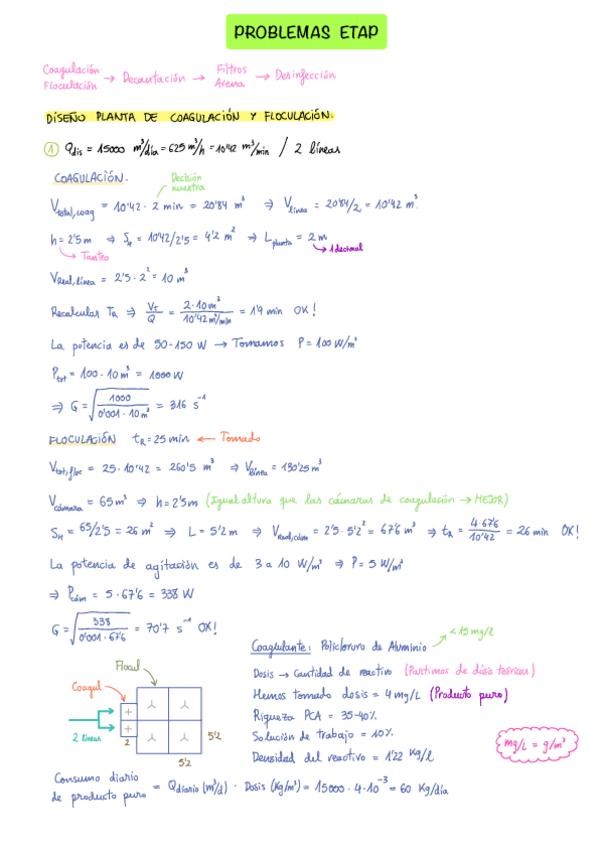 PROBLEMAS ETAP
Coagulación Floculación → Decantación → Filtros Arena → Desinfección
DISEÑO PLANTA DE COAGULACIÓN Y FLOCULACIÓN:
① Qdis = 15000 m³/día = 625 m³/h = 10'42 m³/min / 2 líneas
COAGULACIÓN.
Decisión nuestra
Vtotal,coag = 10'42 · 2 min = 20'84 m³ ⇒ Vlínea = 20'84/2 = 10'42 m³.
h = 2'5 m ⇒ SH = 10'42/2'5 = 4'2 m² ⇒ Lplanta = 2 m
→ Tanteo
→ 1 decimal
VReal,línea = 2'5 · 2² = 10 m³
Recalcular TR ⇒ VT/Q = 2·10 m³/10'42 m³/min = 1'9 min OK!
La potencia es de 50-150 W → Tomamos P = 100 W/m³
Ptot = 100 · 10 m³ = 1000 W
⇒ G = √(1000/0'001 · 10 m³) = 316 s⁻¹
FLOCULACIÓN tR = 25 min ← Tomado
Vtot,floc = 25 · 10'42 = 260'5 m³ ⇒ Vlínea = 130'25 m³
Vcámara = 65 m³ ⇒ h = 2'5m (Igual altura que las cámaras de coagulación → MEJOR)
SH = 65/2'5 = 26 m² ⇒ L = 5'2 m ⇒ VReal,cám = 2'5 · 5'2² = 67'6 m³ ⇒ tR = 4·67'6/10'42 = 26 min OK!
La potencia de agitación es de 3 a 10 W/m³ ⇒ P = 5 W/m³
⇒ Pcám = 5 · 67'6 = 338 W
G = √(338/0'001 · 67'6) = 70'7 s⁻¹ OK!
< 15 mg/L
Coagulante: Policloruro de Aluminio
Flocul
Dosis → Cantidad de reactivo (Partimos de dosis teóricas)
Coagul
Hemos tomado dosis = 4 mg/L (Producto puro)
Riqueza PCA = 35-40%
2 líneas
2
5'2
5'2
Solución de trabajo = 10%
mg/L = g/m³
Densidad del reactivo = 1'22 Kg/l
Consumo diario de producto puro = Qdiario (m³/d) · Dosis (Kg/m³) = 15000 · 4·10⁻³ = 60 Kg/día